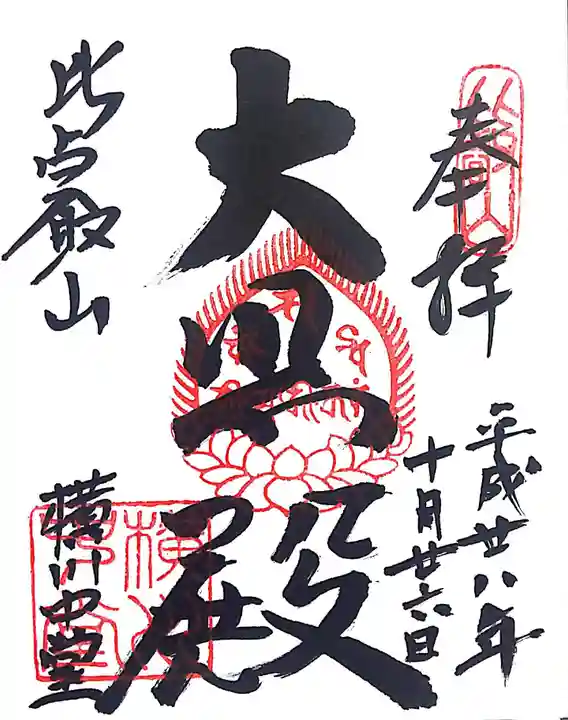 奉拝
平成廿八年
十月廿六日
大悲殿
比叡山
横川中堂